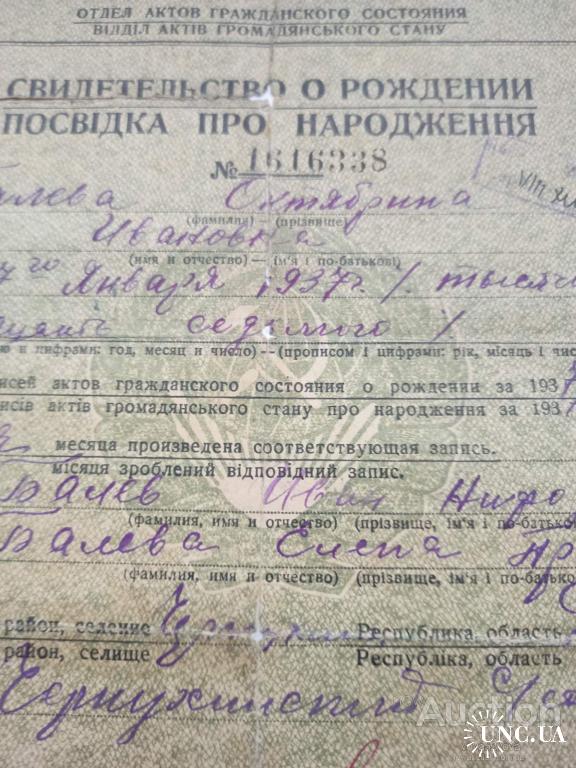 ОТДЕЛ АКТОВ ГРАЖДАНСКОГО СОСТОЯНИЯ
ВІДДІЛ АКТІВ ГРОМАДЯНСЬКОГО СТАНУ
СВИДЕТЕЛЬСТВО О РОЖДЕНИИ
ПОСВІДКА ПРО НАРОДЖЕННЯ
№ 1616338
алева Октябрина
(фамилия) — (прізвище)
Ивановна
(имя и отчество) — (ім'я і по-батькові)
7го Января 1937г. / тысяч
седьмого /
ю и цифрами: год, месяц и число) — (прописом і цифрами: рік, місяць і чис
писей актов гражданского состояния о рождении за 1937
писів актів громадянського стану про народження за 1937
месяца произведена соответствующая запись.
місяця зроблений відповідний запис.
Балев Иван
(фамилия, имя и отчество) (прізвище, ім'я і по-батько
Балева Елена
(фамилия, имя и отчество) (прізвище, ім'я і по-батько
район, селение Республика, область
район, селище Республіка, область
Чернухинский
Auction
UNC.UA